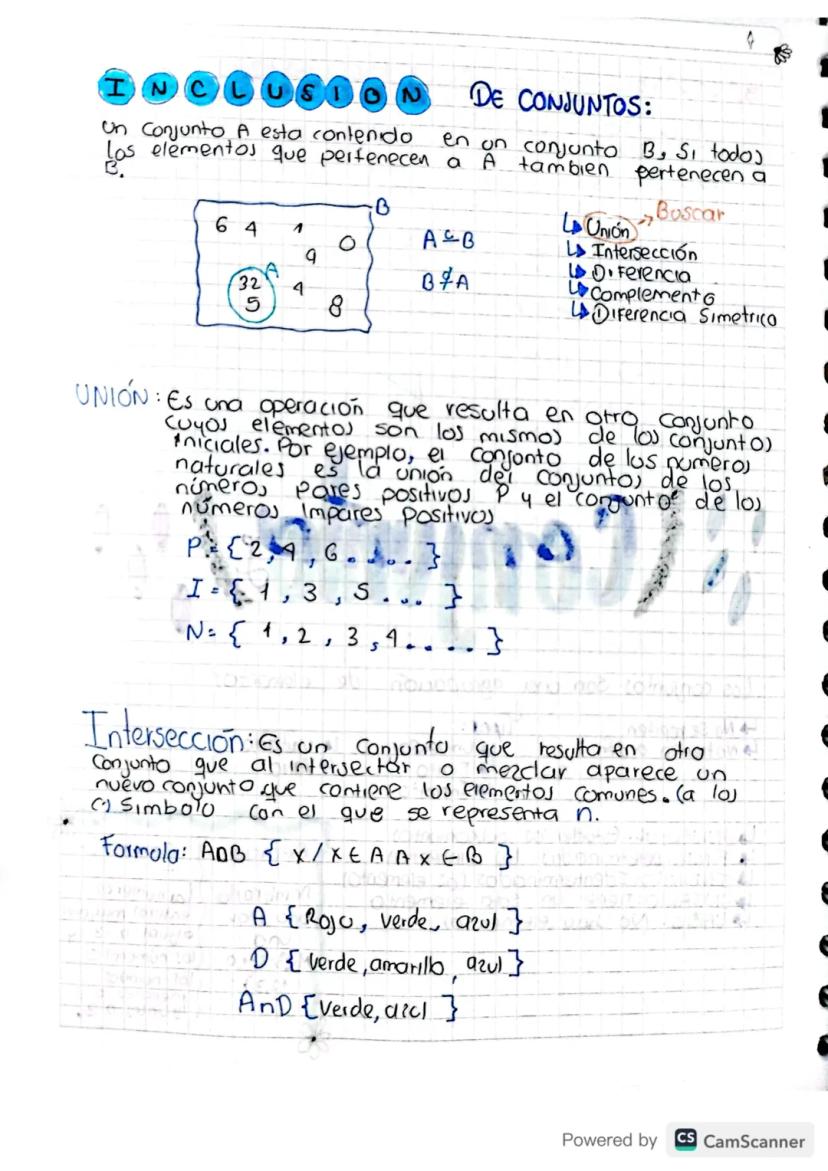 INCLUSION DE CONJUNTOS:
Un conjunto A esta contenido en un conjunto B, Si todos
los elementos que pertenecen a A tambien pertenecen a
B.
B
6 4 1
9 0
A
32 4
5 8
A ⊆ B
B ⊄ A
Unión → Buscar
Intersección
Diferencia
Complemento
Diferencia Simetrica
UNIÓN: Es una operación que resulta en otro conjunto
cuyos elementos son los mismos de los conjuntos
iniciales. Por ejemplo, el conjonto de los numeros
naturales es la unión del conjuntos de los
números pares positivos P y el conjunto de los
números impares positivos
P = {2, 4, 6.....}
I = {1, 3, 5....}
N = {1, 2, 3, 4.....}
Intersección: Es un conjunto que resulta en otro
conjunto que al intersectar o mezclar aparece un
nuevo conjunto que contiene los elementos comunes. (a los
c) Simbolo con el que se representa n.
Formula: A∩B { x/x ∈ A ∧ x ∈ B }
A {Rojo, verde, azul}
D {verde, amarillo, azul}
AnD {verde, azul}
Powered by CS CamScanner